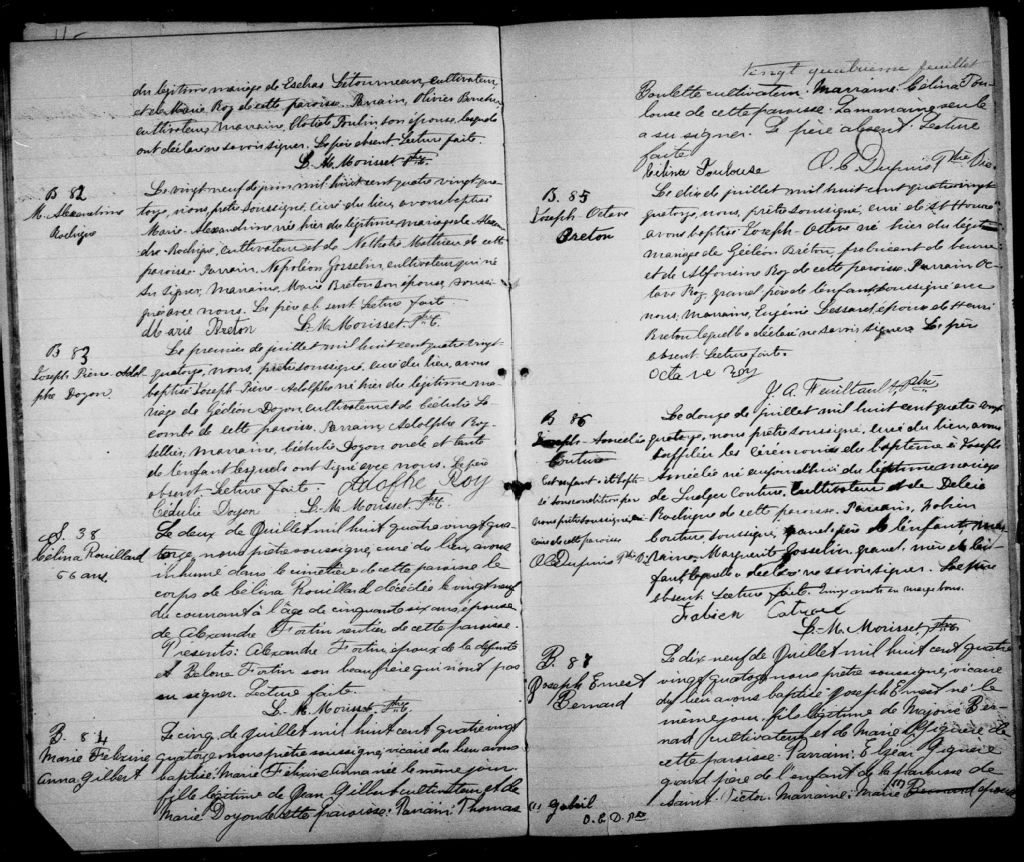 du légitime mariage de Esdras Létourneau, cultivateur,
et de Marie Roy de cette paroisse. Parrain, Olivier
cultivateur, marraine, Clotilde Poulin son épouse, lesquels
ont déclaré ne savoir signer. Le père absent. Lecture faite.
L. M. Morisset Ptre C.
B 82
M. Alexandrine
Rodrigue
Le vingt neuf de juin mil huit cent quatre vingt qua-
torze, nous, prêtre soussigné, curé du lieu, avons baptisé
Marie-Alexandrine née hier du légitime mariage de Alexan-
dre Rodrigue, cultivateur et de Mathieu de cette
paroisse. Parrain, Napoléon Gosselin, cultivateur qui n'a
su signer, Marraine, Marie Breton son épouse, soussi-
gnée avec nous. Le père absent. Lecture faite.
Marie Breton L. M. Morisset. Ptre C.
B 83
Joseph Pierre-Adol-
phe Doyon
Le premier de juillet mil huit cent quatre vingt
quatorze, nous, prêtre soussigné, curé du lieu, avons
baptisé Joseph-Pierre-Adolphe né hier du légitime ma-
riage de Gédéon Doyon, cultivateur et de Cédulie La-
combe de cette paroisse. Parrain, Adolphe Roy
sellier, marraine, Cédulie Doyon oncle et tante
de l'enfant lesquels ont signé avec nous. Le père
absent. Lecture faite. Adolphe Roy
Cédulie Doyon L. M. Morisset Ptre C.
S. 38
Célina Rouillard
56 ans.
Le deux de Juillet mil huit quatre vingt qua-
torze, nous prêtre soussigné, curé du lieu, avons
inhumé dans le cimetière de cette paroisse le
corps de Célina Rouillard décédée le vingt neuf
du courant à l'âge de cinquante six ans épouse
de Alexandre Fortin rentier de cette paroisse.
Présents: Alexandre Fortin, époux de la défunte
et Fortin son beau frère qui n'ont pas
su signer. Lecture faite.
L. M. Morisset. Ptre C.
B. 84
Marie Felixine
Anna Gilbert
Le cinq de Juillet mil huit cent quatre vingt
quatorze nous prêtre soussigné, vicaire du lieu avons
baptisé Marie Felixine Anna née le même jour
fille légitime de Jean Gilbert cultivateur et de
Marie Doyon de cette paroisse. Parrain: Thomas
Vingt quatrième feuillet
Poulette cultivateur. Marraine: Célina Tou-
louse de cette paroisse. La marraine seule
a su signer. Le père absent. Lecture
faite
Célina Toulouse O. C. Dupuis Ptre Vic.
B. 85
Joseph Octave
Breton
Le dix de juillet mil huit cent quatre vingt
quatorze, nous, prêtre soussigné, curé de St Honoré
avons baptisé Joseph-Octave né hier du légitime
mariage de Gédéon Breton, fabricant de beurre
et de Alfonsine Roy de cette paroisse. Parrain Oc-
tave Roy, grand père de l'enfant soussigné avec
nous, Marraine, Eugénie Lessard, épouse de Henri
Breton laquelle a déclaré ne savoir signer. Le père
absent. Lecture faite.
Octave Roy
J. A. Feuiltault, ptre
B 86
Joseph-Amédée
Couture
Cet enfant a été bapti-
sé sous condition par
nous prêtre soussigné,
curé de cette paroisse
O. C. Dupuis Ptre V.
Le douze de juillet mil huit cent quatre vingt
quatorze, nous prêtre soussigné, curé du lieu, avons
supplier les cérémonies du baptême à Joseph-
Amédée né aujourd'hui du légitime mariage
de Couture, cultivateur et de Délia
Rodrigue de cette paroisse. Parrain, Fabien
Couture, soussigné, grand père de l'enfant, mar-
raine, Marguerite Gosselin, grand mère de l'en-
fant laquelle a déclaré ne savoir signer. Le père
absent. Lecture faite. mots en marge bons.
Fabien
L. M. Morisset, Ptre C.
B. 87
Joseph Ernest
Bernard
Le dix neuf de Juillet mil huit cent quatre
vingt quatorze nous prêtre soussigné, vicaire
du lieu avons baptisé Joseph Ernest né le
même jour fils légitime de Majorie Ber-
nard cultivateur et de Marie Giguère de
cette paroisse. Parrain: Elzéar Giguère
grand père de l'enfant de la paroisse de
Saint Victor. Marraine: Marie (1) Bernard épouse
(1) Gobeil
O. C. D. Ptre